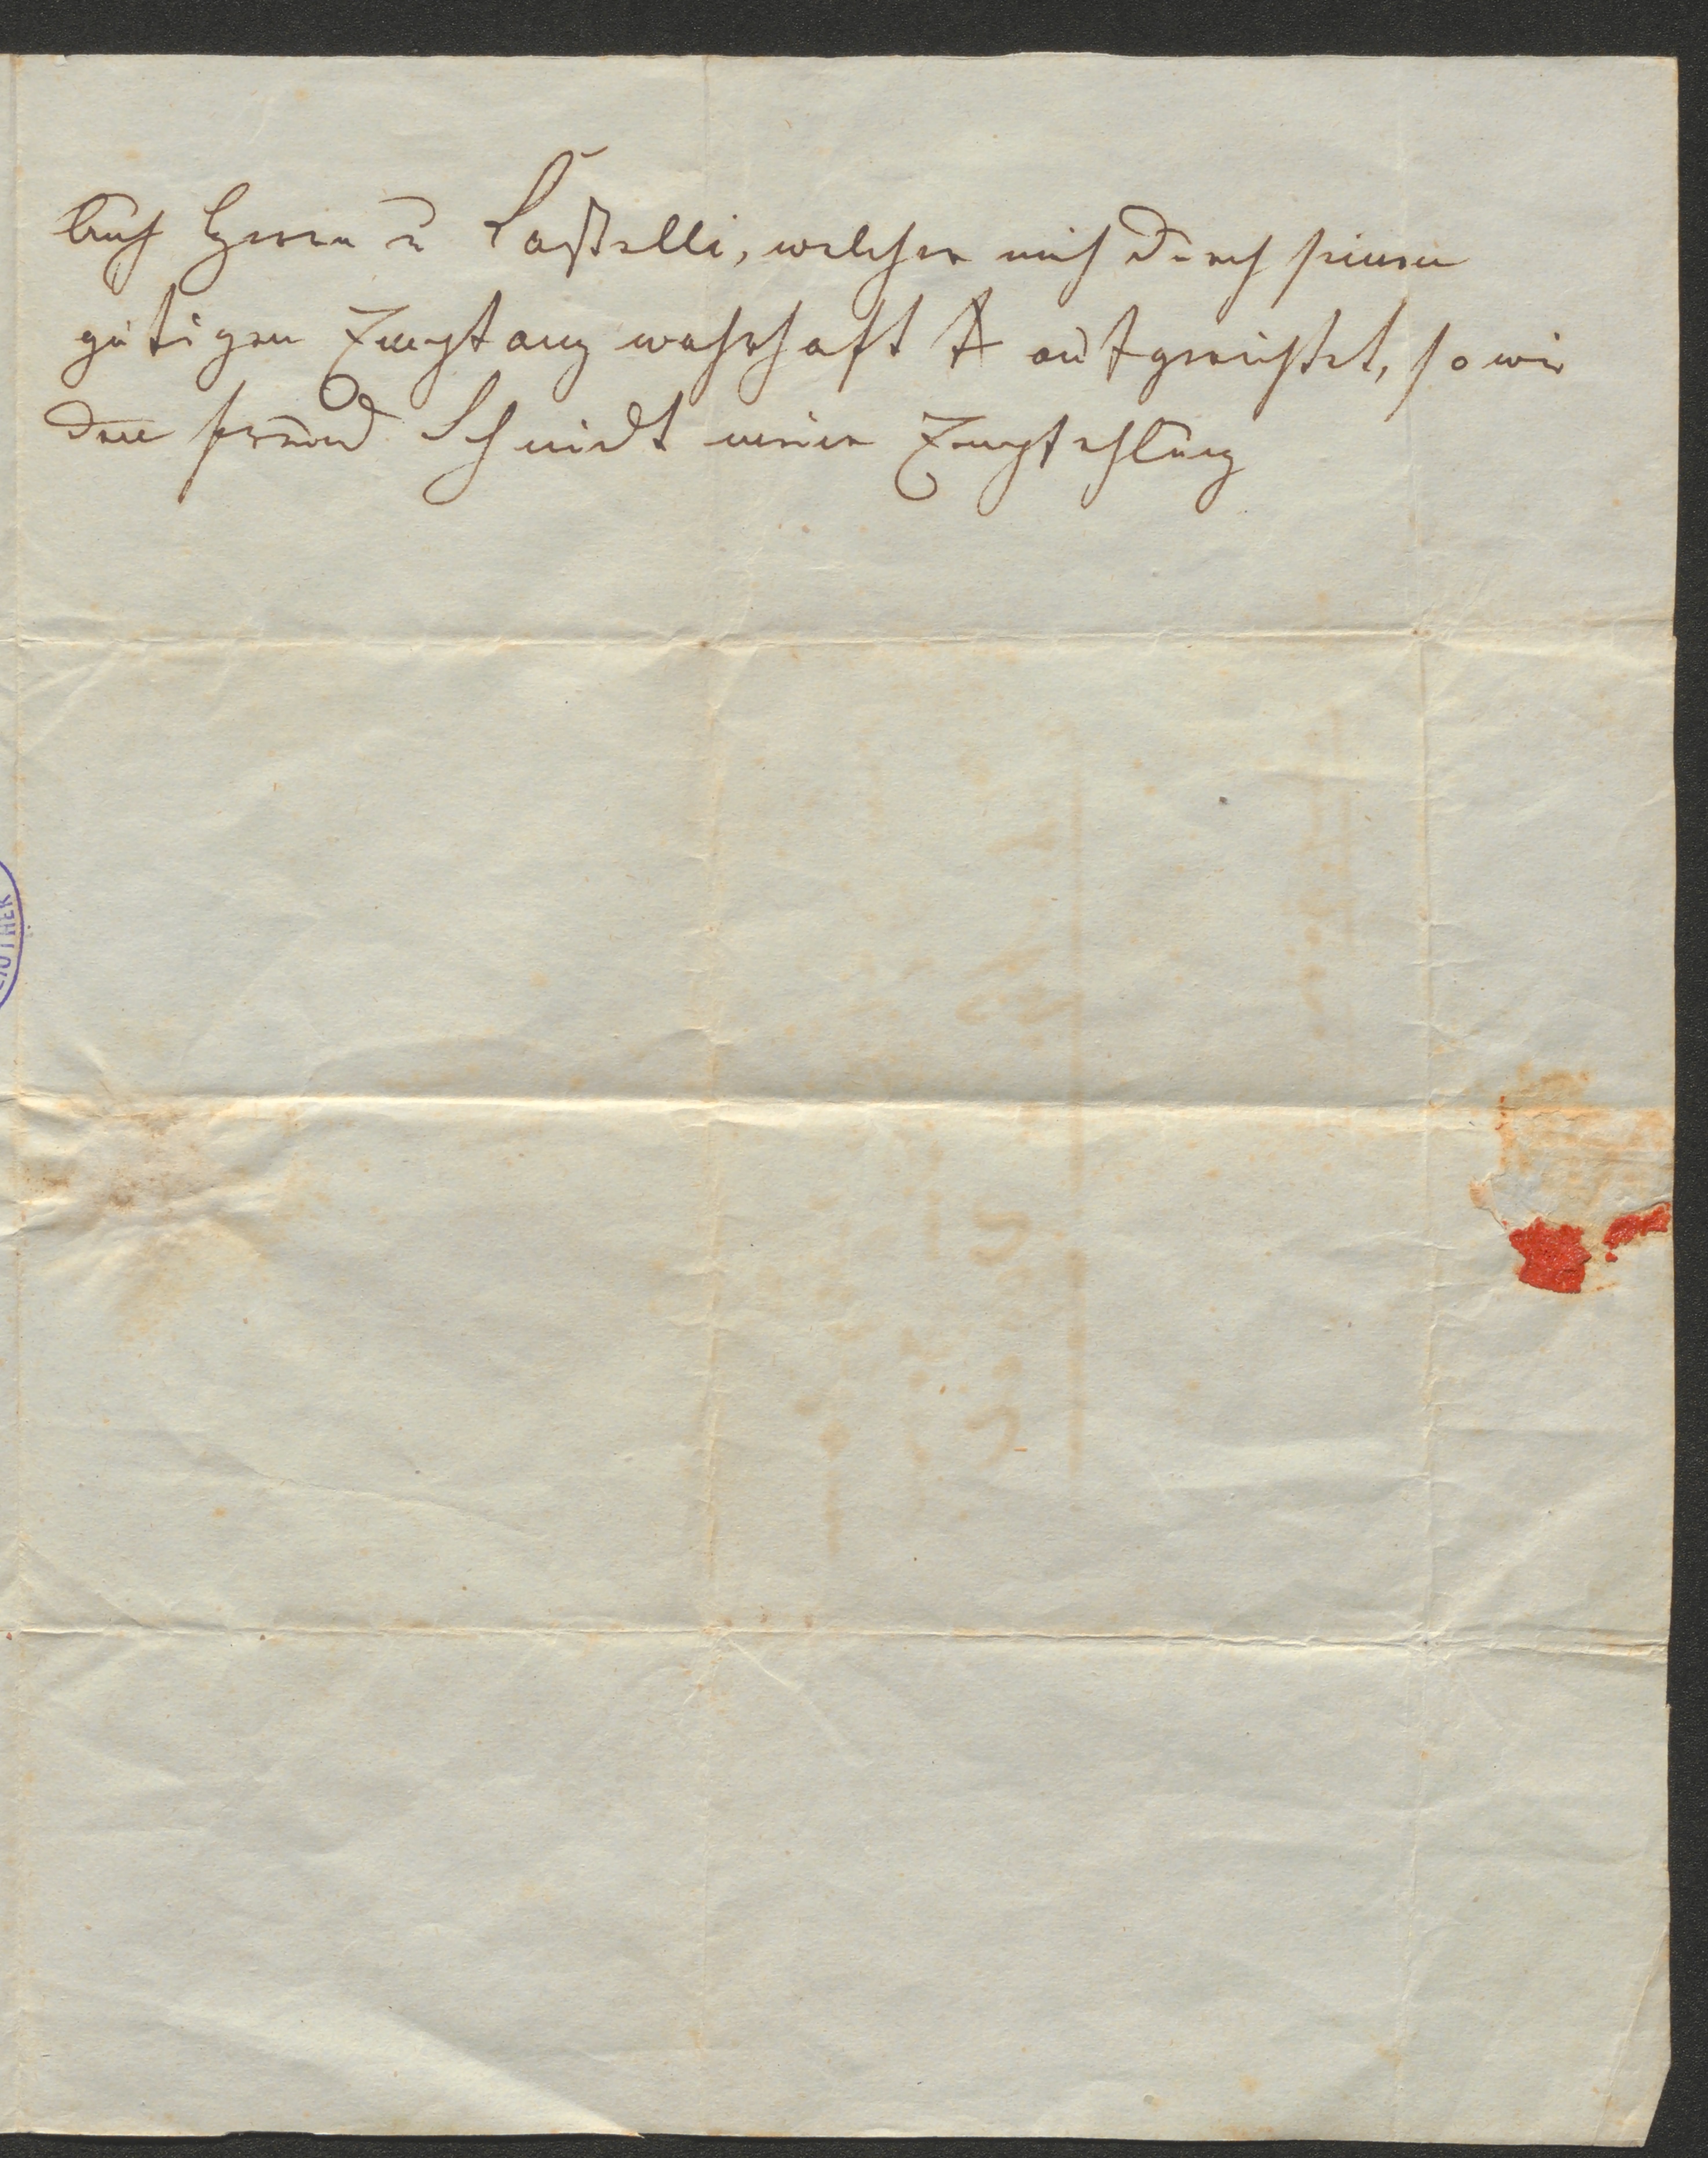 Auch Herrn v Castelli, welcher mich durch seinen
gütigen Empfang wahrhaft aufgerichtet, so wie
dem freund Schmidt meine Empfehlung